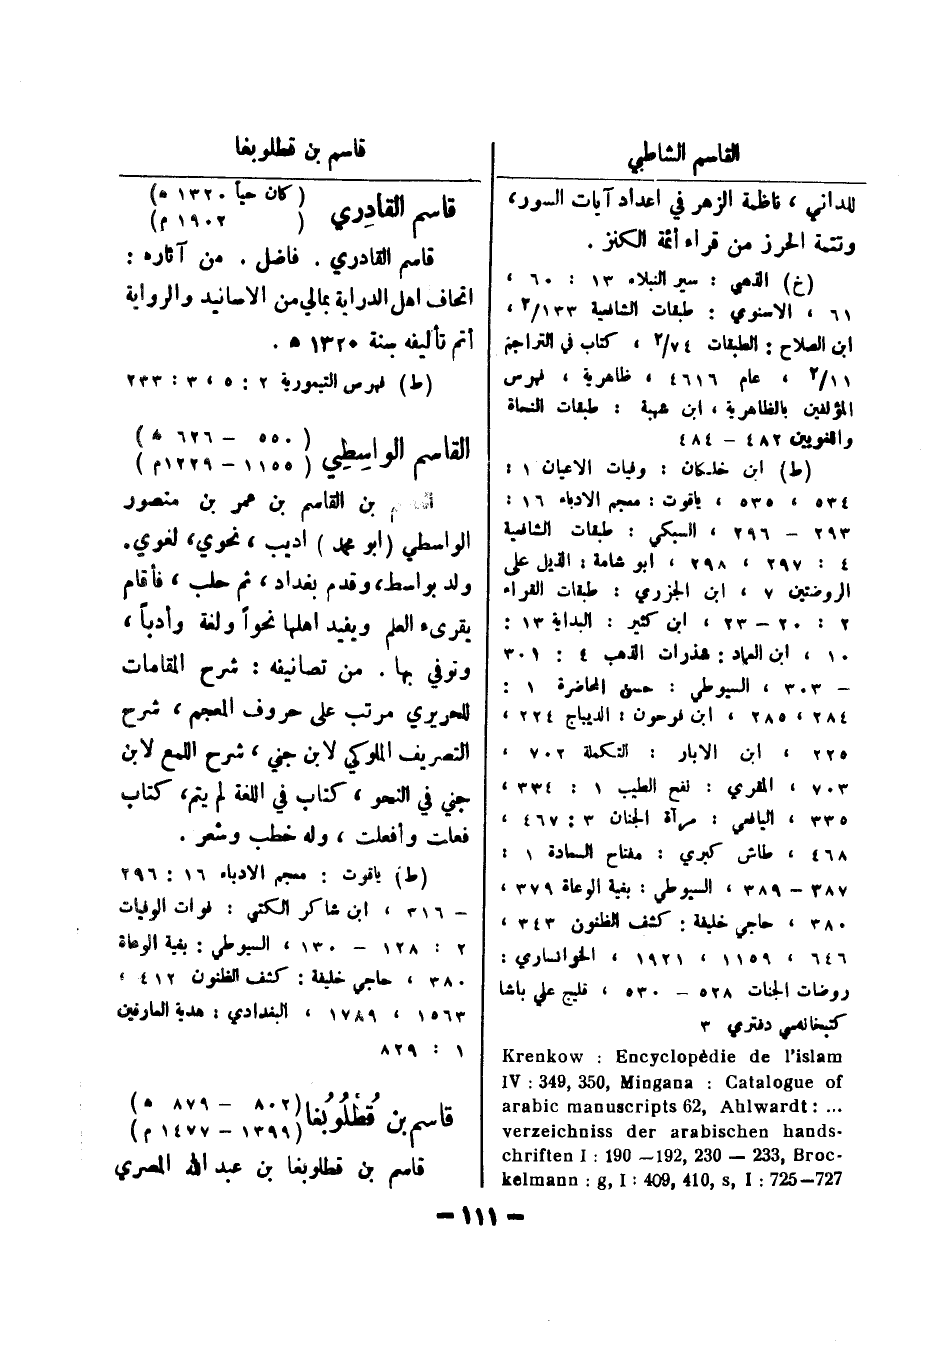 القاسم الشاطبي
للداني ، ناظمة الزهر في اعداد آيات السور ،
وتتمة الحرز من قراء أئمة الكنز .
(خ) الذهبي : سير النبلاء ١٣ : ٦٠ ،
٦١ ، الاسنوي : طبقات الشافعية ٢/١٣٣ ،
ابن الصلاح : الطبقات ٢/٧٤ ، كتاب في التراجم
٢/١١ ، عام ٤٦١٦ ، ظاهرية ، فهرس
المؤلفين بالظاهرية ، ابن شهبة : طبقات النحاة
واللغويين ٤٨٢ – ٤٨٤
(ط) ابن خلكان : وفيات الاعيان ١ :
٥٣٤ ، ٥٣٥ ، ياقوت : معجم الادباء ١٦ :
٢٩٣ – ٢٩٦ ، السبكي : طبقات الشافعية
٤ : ٢٩٧ ، ٢٩٨ ، ابو شامة : الذيل على
الروضتين ٧ ، ابن الجزري : طبقات القراء
٢ : ٢٠ – ٢٣ ، ابن كثير : البداية ١٣ :
١٠ ، ابن العماد : شذرات الذهب ٤ : ٣٠١
– ٣٠٣ ، السيوطي : حسن المحاضرة ١ :
٢٨٤ ، ٢٨٥ ، ابن فرحون : الديباج ٢٢٤ ،
٢٢٥ ، ابن الابار : التكملة ٧٠٢ ،
٧٠٣ ، المقري : نفح الطيب ١ : ٣٣٤ ،
٣٣٥ ، اليافعي : مرآة الجنان ٣ : ٤٦٧ ،
٤٦٨ ، طاش كبري : مفتاح السعادة ١ :
٣٨٧ – ٣٨٩ ، السيوطي : بغية الوعاة ٣٧٩ ،
٣٨٠ ، حاجي خليفة : كشف الظنون ٣٤٣ ،
٦٤٦ ، ١١٥٩ ، ١٩٢١ ، الخوانساري :
روضات الجنات ٥٢٨ – ٥٣٠ ، قليج علي باشا
كتبخانه سي دفتري ٣
Krenkow : Encyclopédie de l'islam
IV : 349, 350, Mingana : Catalogue of
arabic manuscripts 62, Ahlwardt : ...
verzeichniss der arabischen hands-
chriften I : 190 —192, 230 — 233, Broc-
kelmann : g, I : 409, 410, s, I : 725—727
قاسم بن قطلوبغا
قاسم القادري (كان حياً ١٣٢٠ ه)
( ١٩٠٢ م)
قاسم القادري . فاضل . من آثاره :
اتحاف اهل الدراية بمالي من الاسانيد والرواية
أتم تأليفه سنة ١٣٢٠ ه .
(ط) فهرس التيمورية ٢ : ٥ ، ٣ : ٢٣٣
القاسم الواسطي (٥٥٠ – ٦٢٦ ه)
(١١٥٥ – ١٢٢٩ م)
القاسم بن القاسم بن عمر بن منصور
الواسطي (ابو محمد) اديب ، نحوي ، لغوي .
ولد بواسط، وقدم بغداد ، ثم حلب ، فأقام
يقرىء العلم ويفيد اهلها نحواً ولغة وأدباً ،
وتوفي بها . من تصانيفه : شرح المقامات
للحريري مرتب على حروف المعجم ، شرح
التصريف الملوكي لابن جني ، شرح اللمع لابن
جني في النحو ، كتاب في اللغة لم يتم، كتاب
فعلت وأفعلت ، وله خطب وشعر .
(ط) ياقوت : معجم الادباء ١٦ : ٢٩٦
– ٣١٦ ، ابن شاكر الكتبي : فوات الوفيات
٢ : ١٢٨ – ١٣٠ ، السيوطي : بغية الوعاة
٣٨٠ ، حاجي خليفة : كشف الظنون ٤١٢ ،
١٥٦٣ ، ١٧٨٩ ، البغدادي : هدية العارفين
١ : ٨٢٩
قاسم بن قُطْلُوبُغا (٨٠٢ – ٨٧٩ ه)
(١٣٩٩ – ١٤٧٧ م)
قاسم بن قطلوبغا بن عبد الله المصري
– ١١١ –